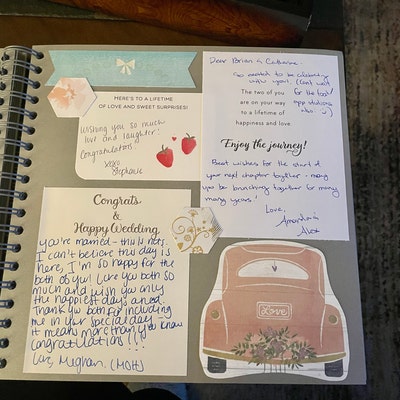 HERE'S TO A LIFETIME
OF LOVE AND SWEET SURPRISES!
Wishing you so much
love and laughter!
Congratulations!
XOXO
Stephanie
Dear Brian & Catherine,
So excited to be celebrating
with you! Can't wait
for the food
app stations
also :)
The two of you
are on your way
to a lifetime of
happiness and love
Enjoy the journey!
Best wishes for the start of
your next chapter together - many
you be together for many
many years!
Love,
Amanda &
Alex
Congrats
&
Happy Wedding
You're married - this is nuts.
I can't believe this day is
here, I'm so happy for the
both of you! Love you both so
much and wish you only
the happiest days ahead.
Thank you both for including
me in your special day -
it means more than you know
Congratulations!!!
Love, Meghan (MOH)
Love